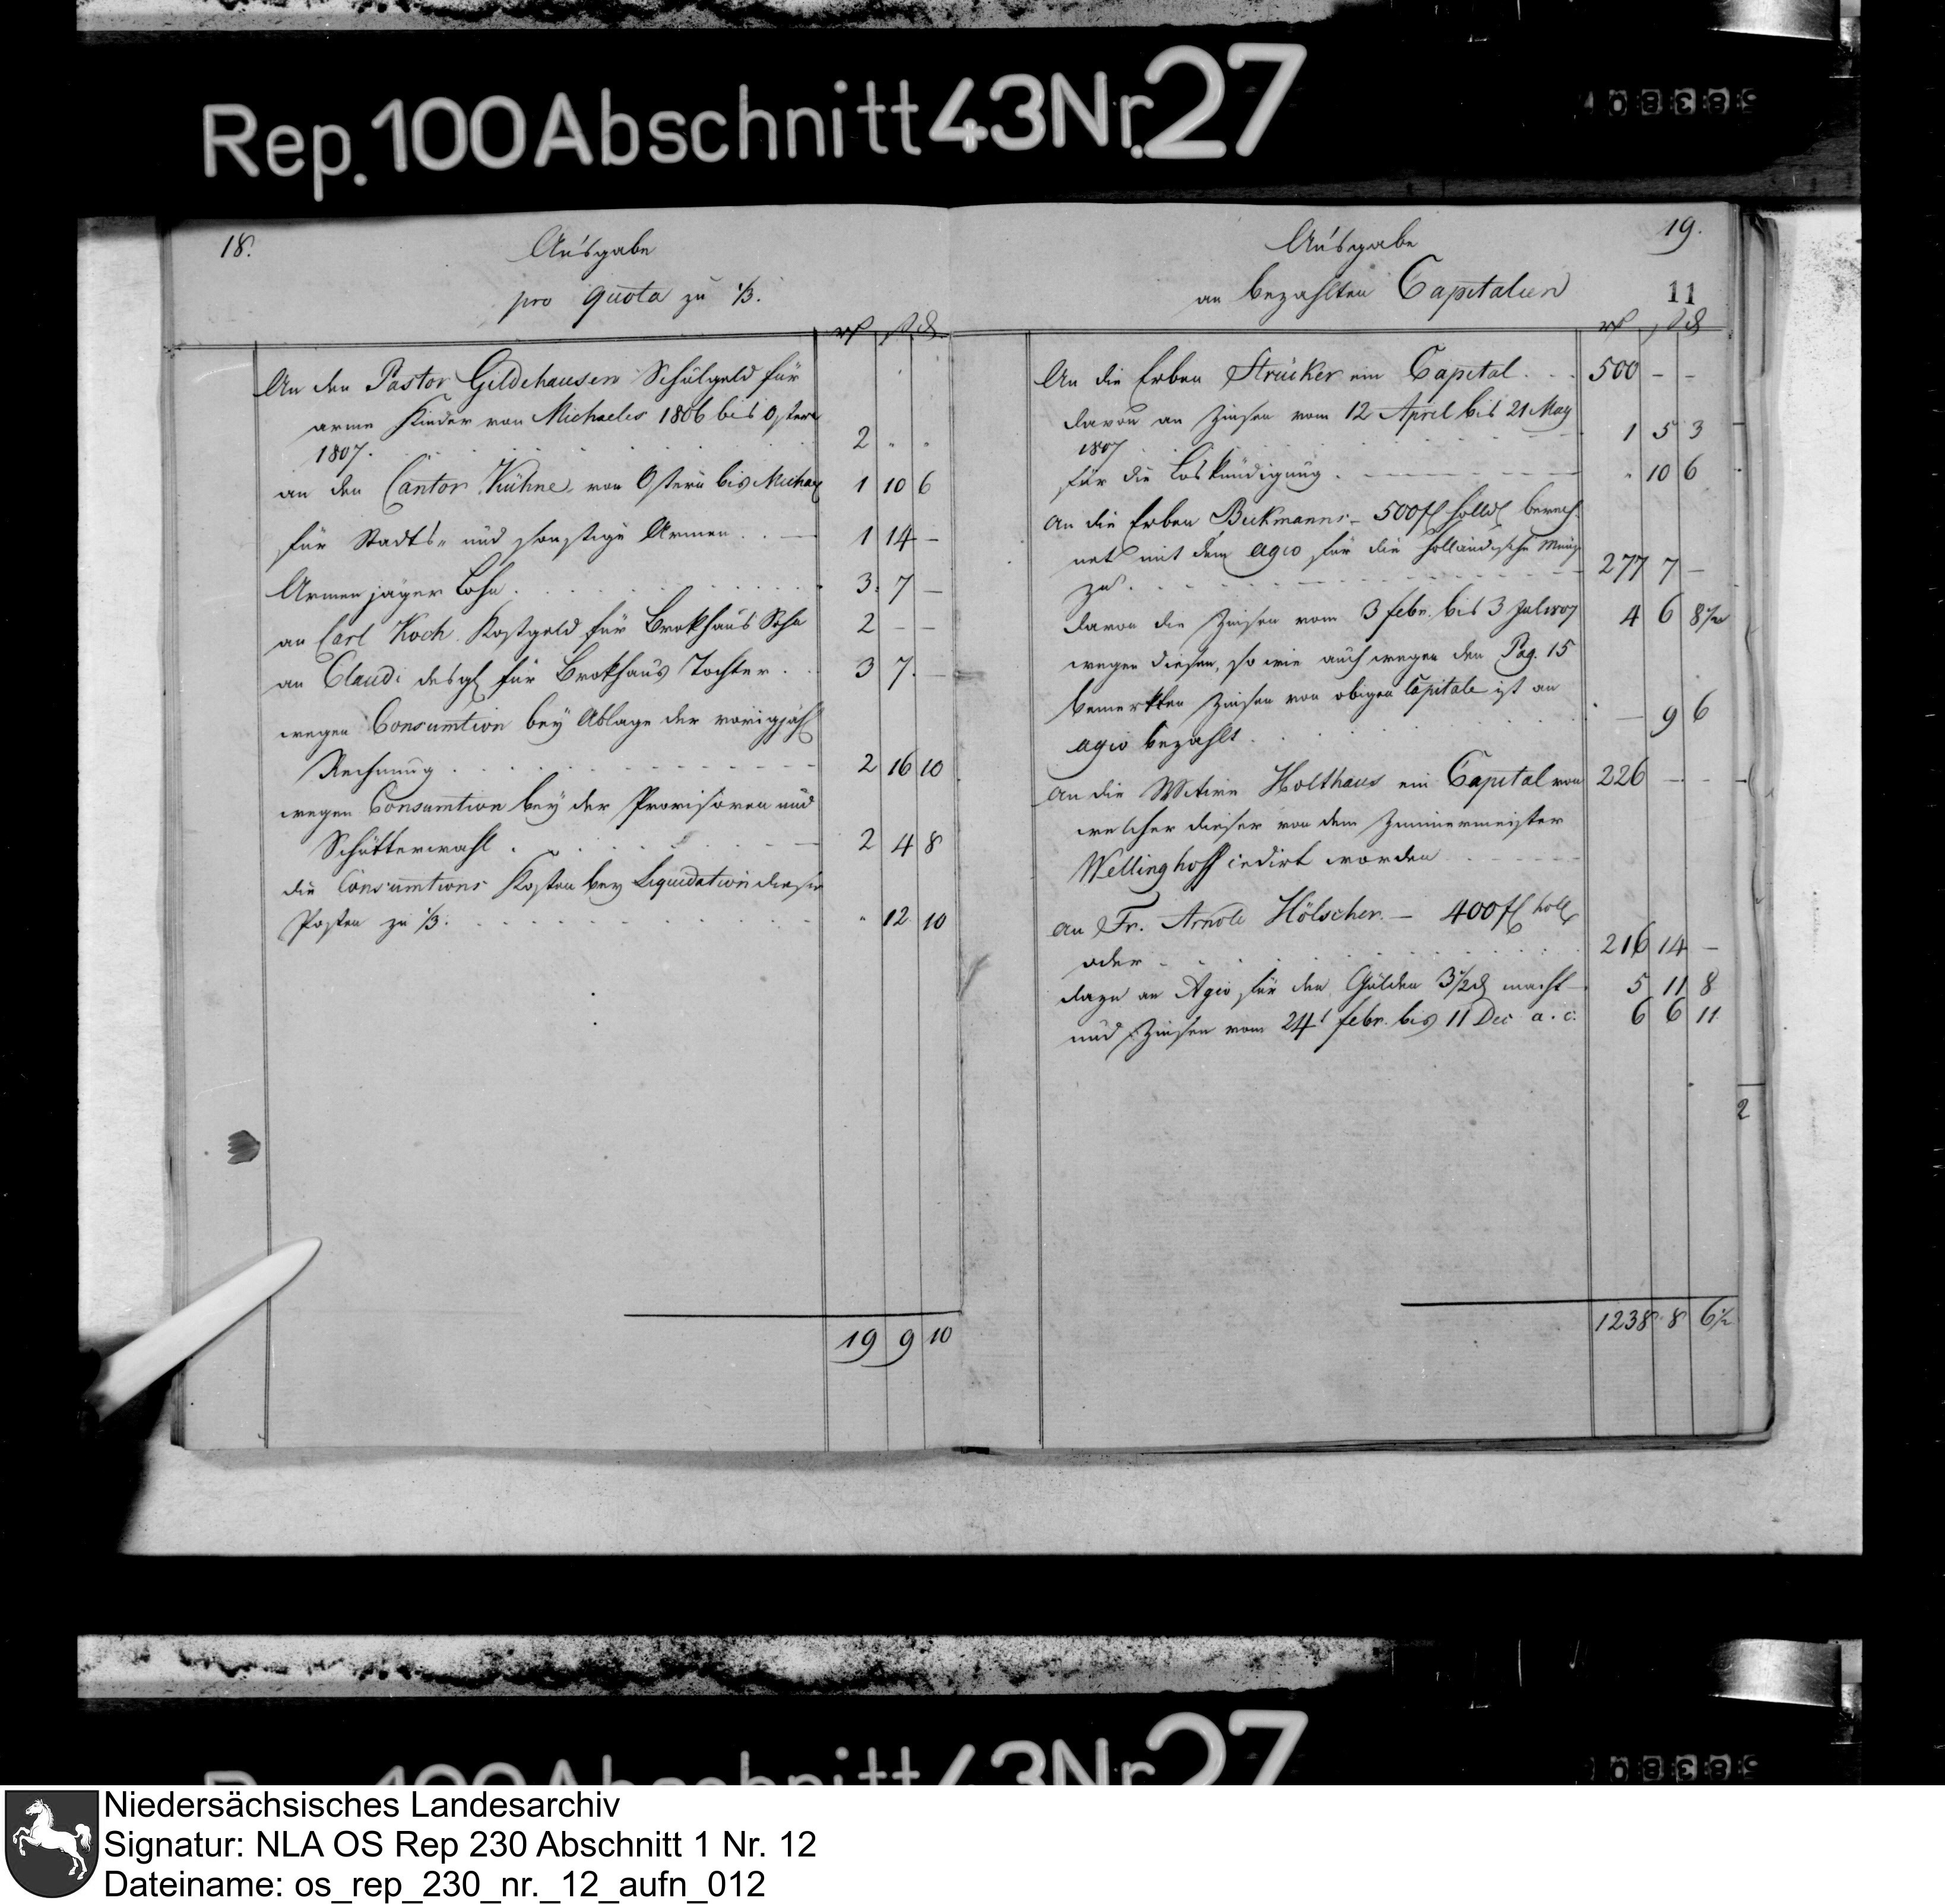 Rep. 100 Abschnitt 43 Nr. 27
18.
Ausgabe
pro quota zu 1/3.
An den Pastor Gildehausen Schulgeld für
arme Kinder von Michaelis 1806 bis Ostern
1807. 2 " "
an den Cantor Kühne von Ostern bis Michael 1 10 6
für Stadts- und sonstige Armen 1 14 –
Armenjäger Lohn 3 7 –
an Carl Koch Kostgeld für Brokhaus Sohn 2 – –
an Claudi desgl für Brokhaus Tochter 3 7 –
wegen Consumtion bey Ablage der vorigjähr
Rechnung 2 16 10
wegen Consumtion bey der Provisoren und
Schütterwahl 2 4 8
die Consumtions Kosten bey Liquidation dieser
Posten zu 1/3. " 12 10
19 9 10
19.
Ausgabe
an bezahlten Capitalien
11
An die Erben Strücker ein Capital 500 – –
davon an Zinsen vom 12 April bis 21 May
1807 1 5 3
für die Loskündigung " 10 6
An die Erben Beckmanns – 500 fl holld berech-
net mit dem Agio für die holländische Münze
zu 277 7 –
davon die Zinsen vom 3 febr. bis 3 Jul 1807 4 6 8 1/2
wegen diesen, so wie auch wegen den Pag. 15
bemerkten Zinsen von obigen Capitale ist an
Agio bezahlt – 9 6
An die Witwe Holthaus ein Capital von 226 – –
welcher dieser von dem Zimmermeister
Wellinghoff cedirt worden
an Fr. Arnold Hölscher – 400 fl holl
oder 216 14 –
dazu an Agio für den Gulden 3 1/2 d macht 5 11 8
und Zinsen vom 24t febr. bis 11 Dec a. c. 6 6 11
2
1238 8 6 1/2
Niedersächsisches Landesarchiv
Signatur: NLA OS Rep 230 Abschnitt 1 Nr. 12
Dateiname: os_rep_230_nr._12_aufn_012